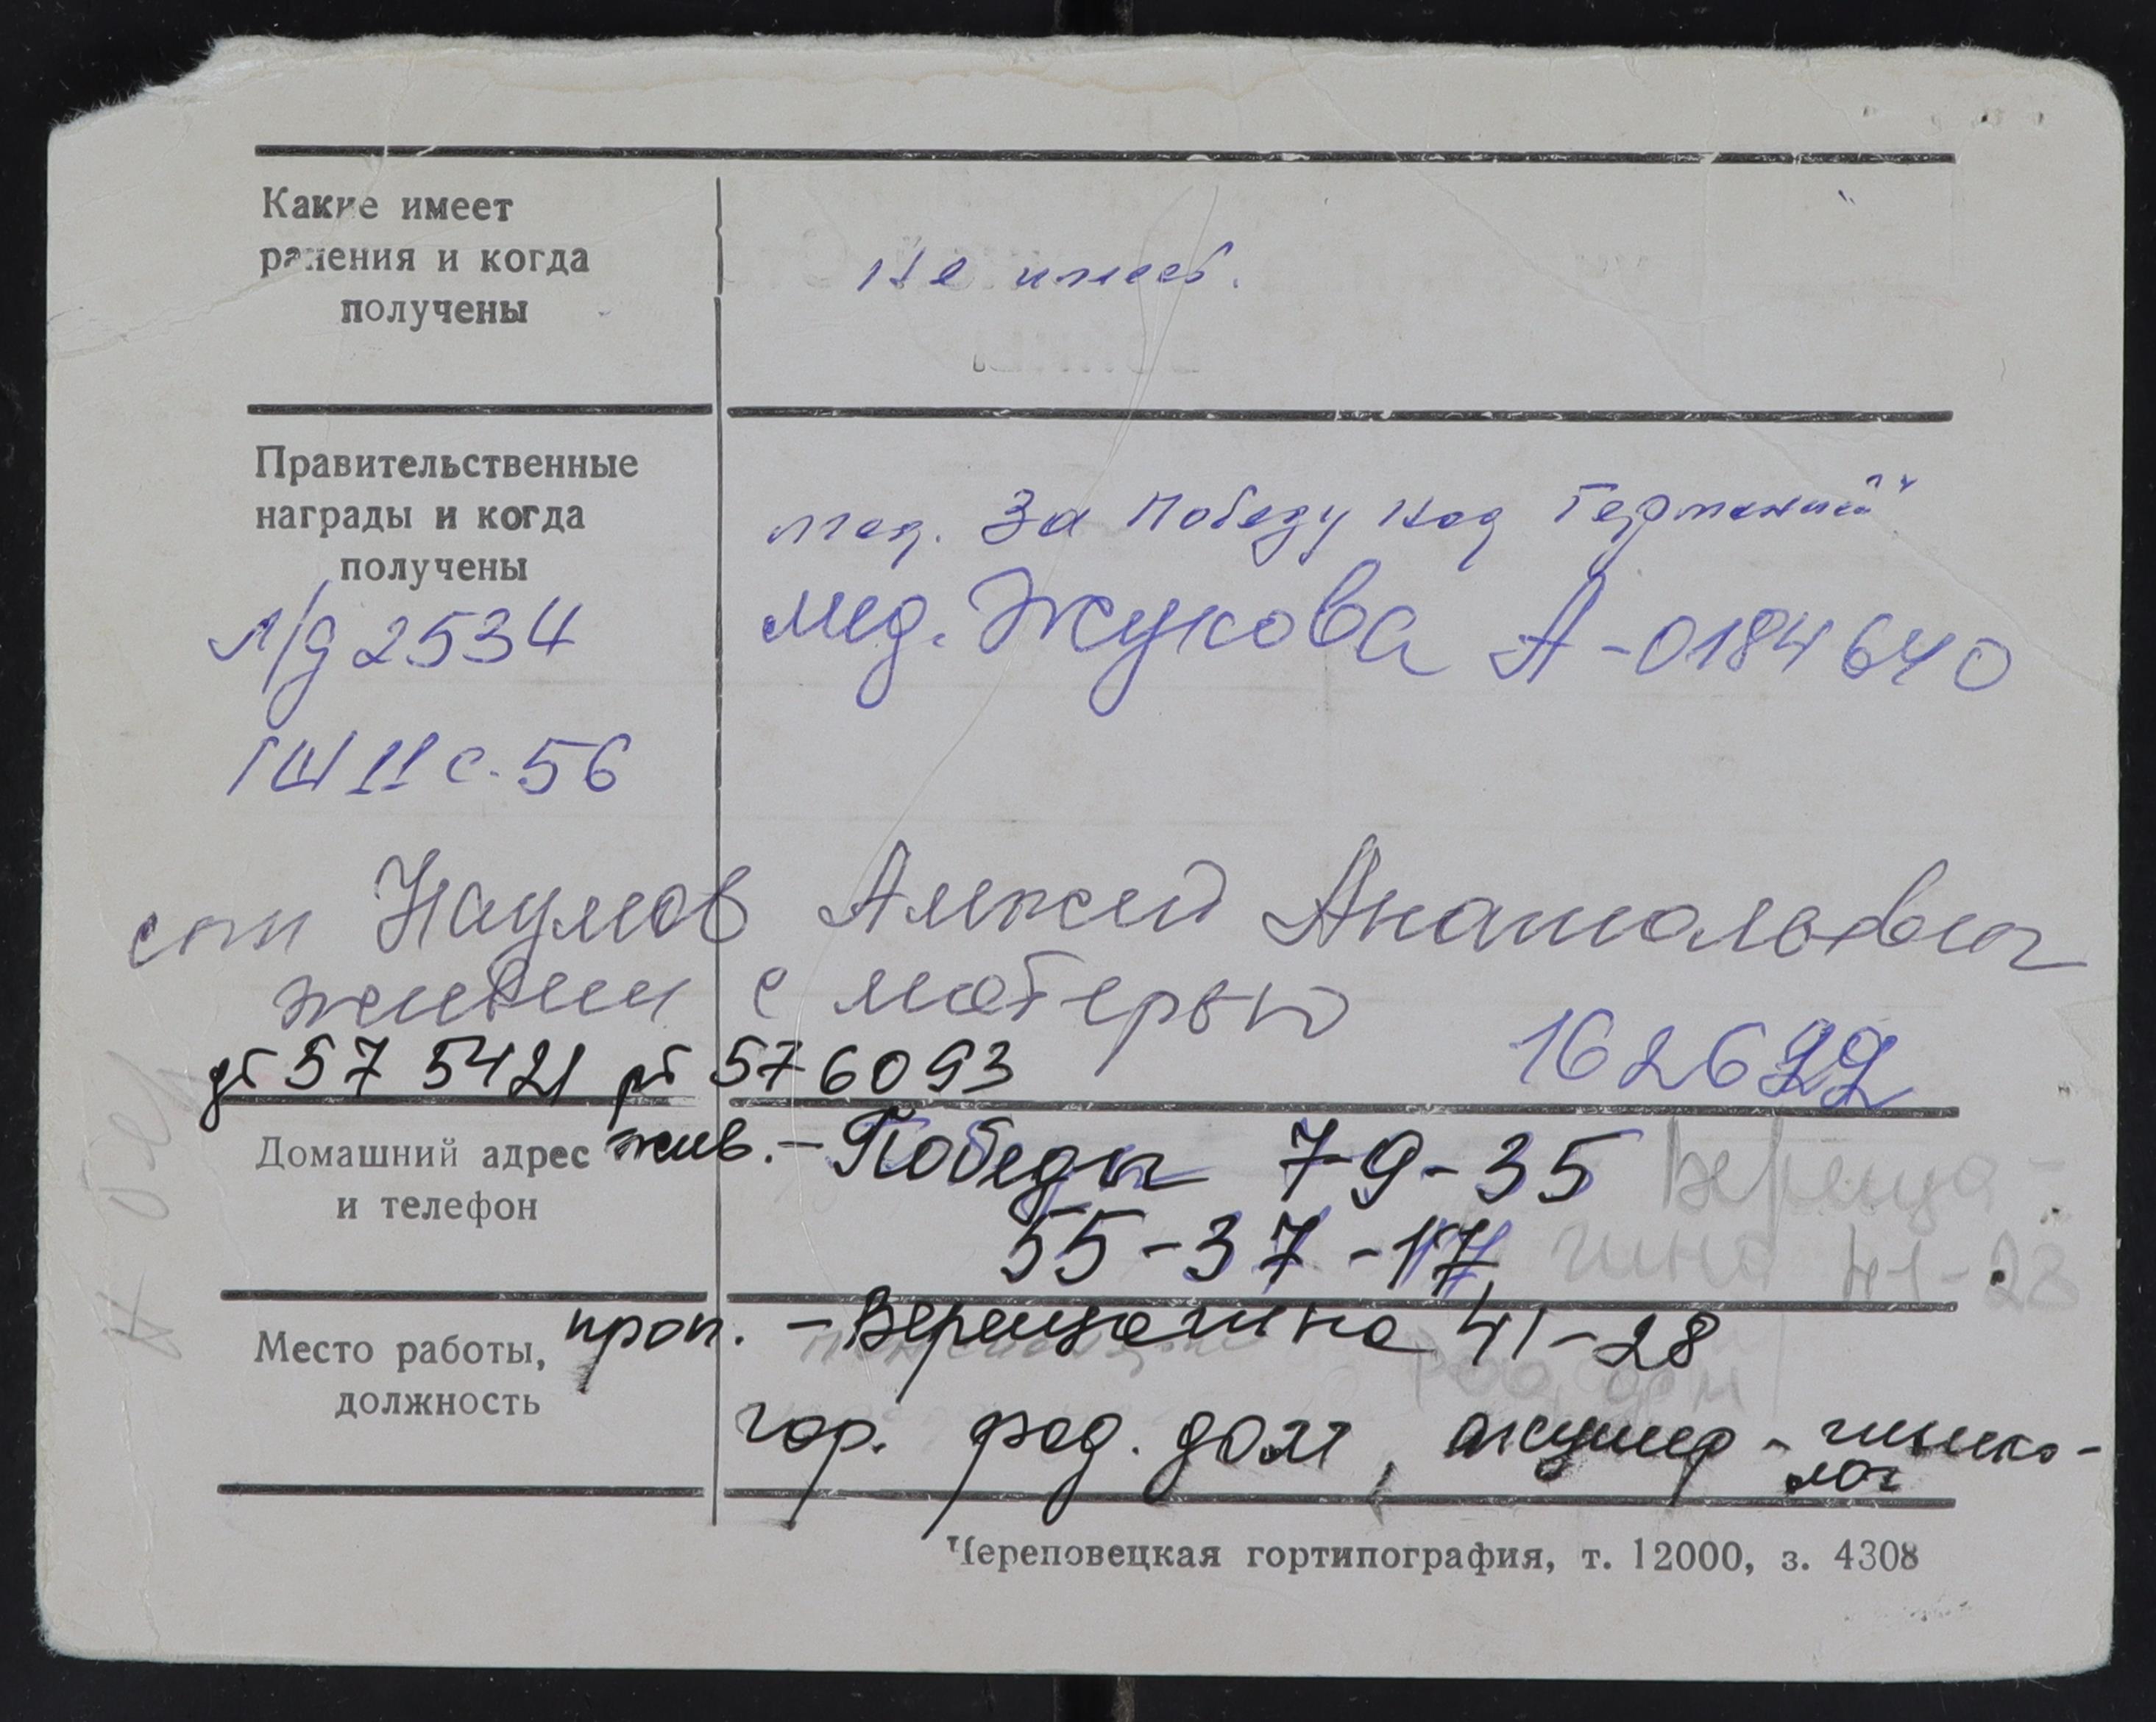 Какие имеет
ранения и когда
получены
Не имеет.
Правительственные
награды и когда
получены
мед. За Победу над Германией"
мед. Жукова А-0184640
л/д 2534
ГШ II с. 56
сын Наумов Алексей Анатольевич
живет с матерью
162622
дт 57 5421 рт 576093
Домашний адрес
и телефон
жив. - Победы 79-35
55-37-17
Вереща-
гина 41-28
Место работы,
должность
проп. - Верещагина 41-28
род. дом
гор. род. дом, акушер-гинеко-
лог
Череповецкая гортипография, т. 12000, з. 4308